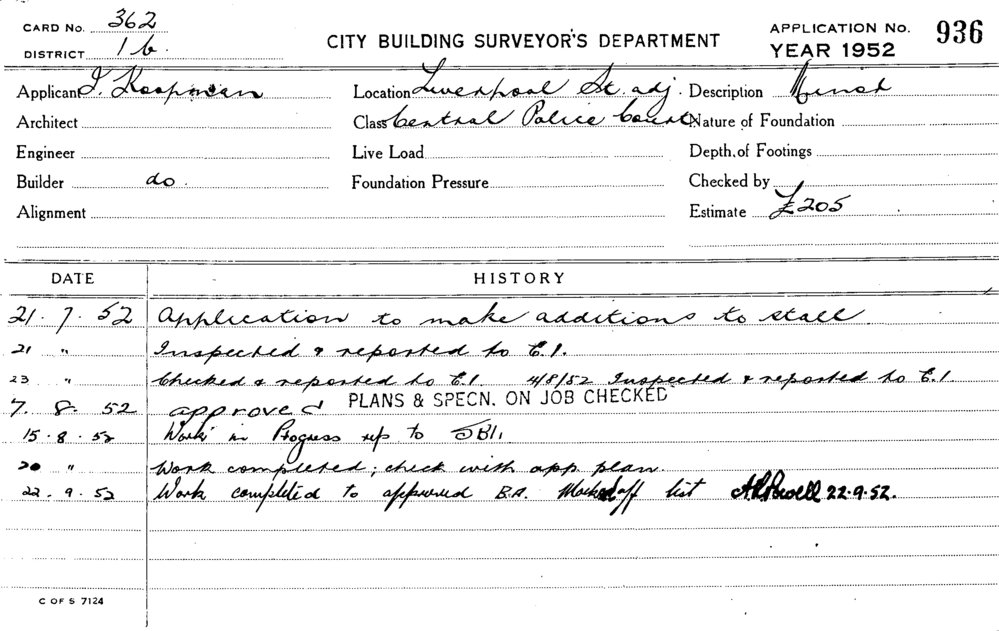 CARD No. 362
DISTRICT 1 b.
CITY BUILDING SURVEYOR'S DEPARTMENT
APPLICATION No. 936
YEAR 1952
Applicant I. Koopman Location Liverpool St. adj. Description Minor
Architect Class Central Police Court Nature of Foundation
Engineer Live Load Depth of Footings
Builder do. Foundation Pressure Checked by
Alignment Estimate £205
DATE HISTORY
21. 7. 52 Application to make additions to stall.
21 " Inspected & reported to C.I.
23 " Checked & reported to C.I. 4/8/52 Inspected & reported to C.I.
7. 8. 52 approved PLANS & SPECN. ON JOB CHECKED
15. 8. 52 Work in Progress rep to
20 " Work completed; check with app plan.
22. 9. 52 Work completed to approved B.A. Marked off list 22.9.52.
C OF S 7124